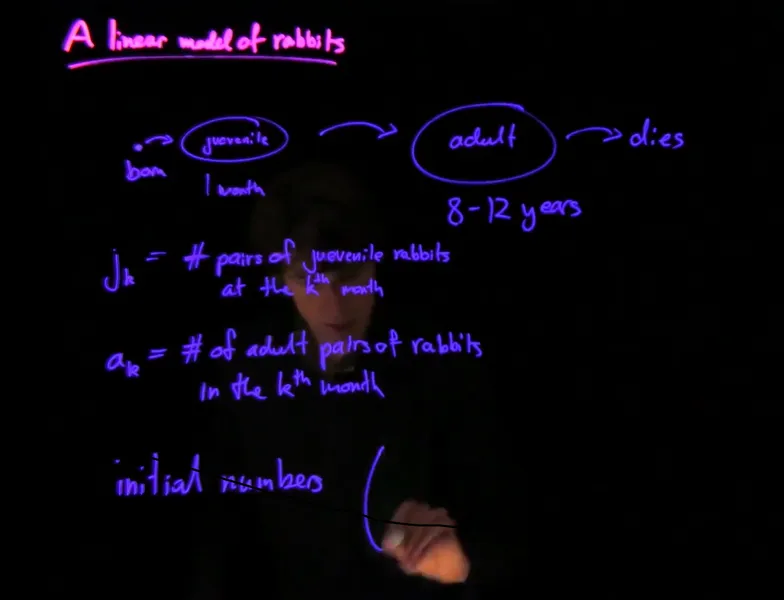 A linear model of rabbits
born → juevenile → adult → dies
1 month
8-12 years
jₖ = # pairs of juevenile rabbits
at the kᵗʰ month
aₖ = # of adult pairs of rabbits
in the kᵗʰ month
initial numbers (